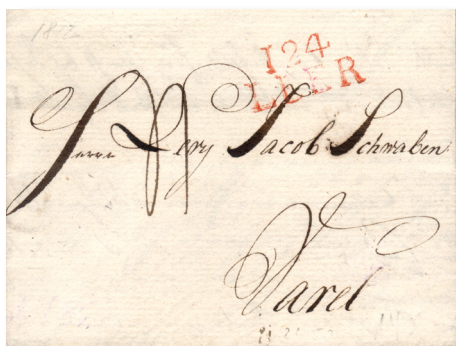 124
LEER
Herrn Levy Jacob Schwaben
Varel